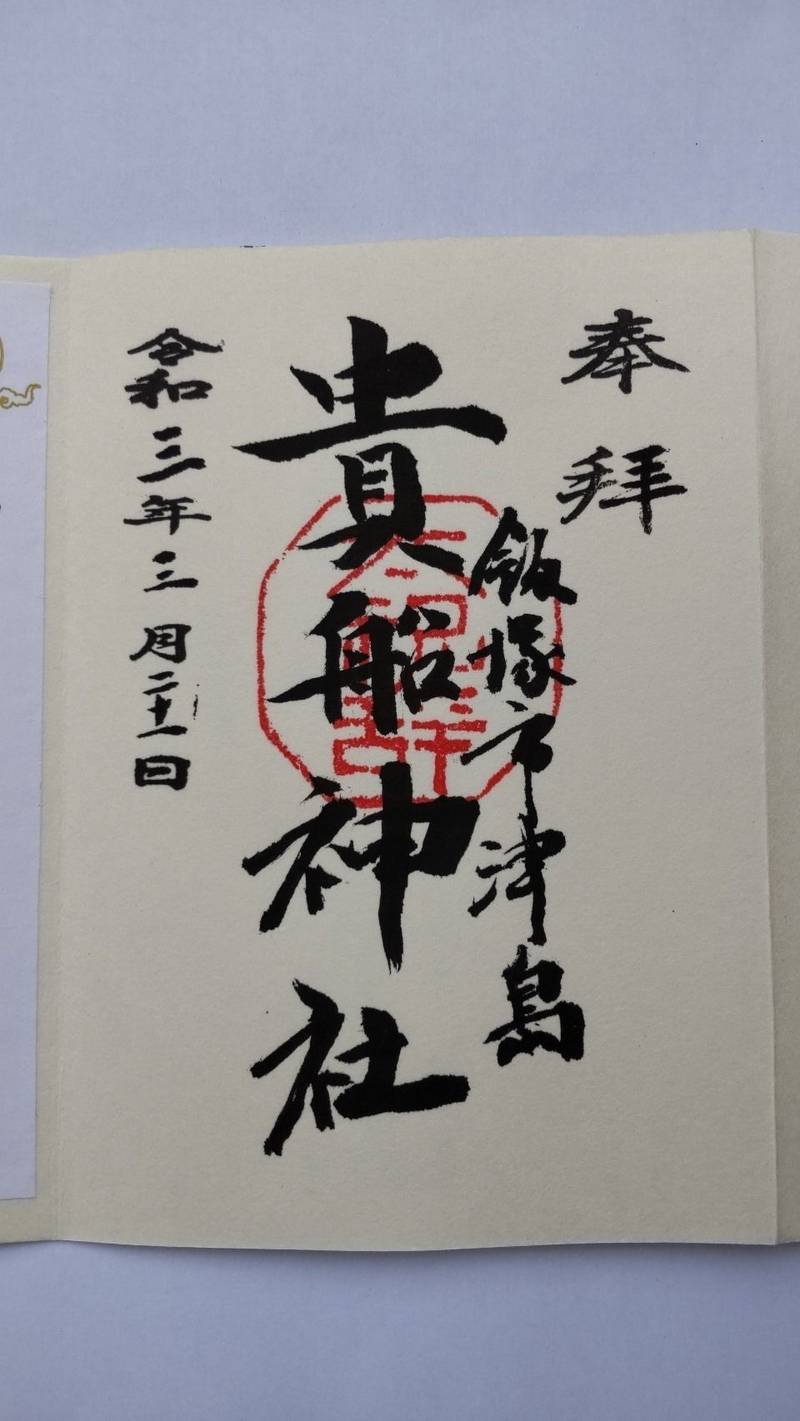 奉拝
飯塚市津島
貴船神社
令和三年三月二十一日